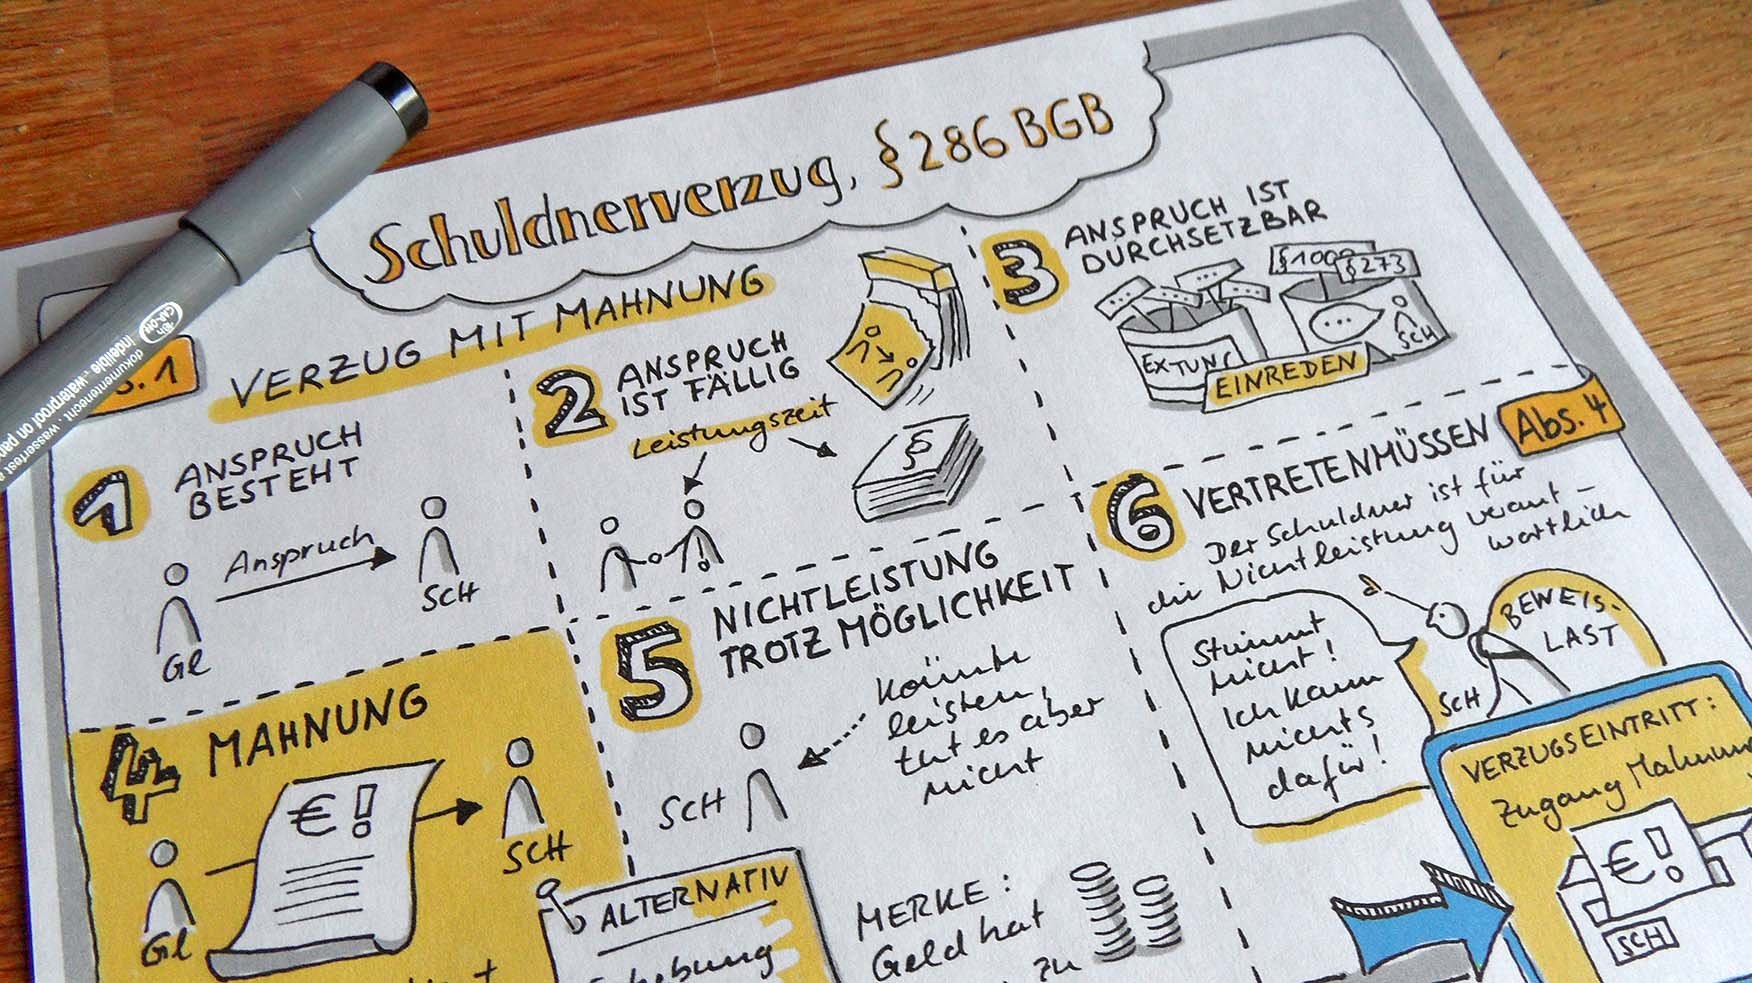 Schuldnerverzug, § 286 BGB
VERZUG MIT MAHNUNG
1
ANSPRUCH
BESTEHT
Anspruch
Gl
SCH
2
ANSPRUCH
IST FÄLLIG
Leistungszeit
§
3
ANSPRUCH IST
DURCHSETZBAR
EX TUNC
§273
SCH
EINREDEN
4
MAHNUNG
€!
Gl
SCH
5
NICHTLEISTUNG
TROTZ MÖGLICHKEIT
Könnte
leisten,
tut es aber
nicht
SCH
ALTERNATIV
MERKE:
Geld hat
zu
Abs. 4
6
VERTRETENMÜSSEN
Der Schuldner ist für
die Nichtleistung verant-
wortlich
Stimmt
nicht!
Ich kann
nichts
dafür!
SCH
BEWEIS-
LAST
VERZUGSEINTRITT:
Zugang
€!
SCH
dokumentenecht. wasserfest
indelible. waterproof on